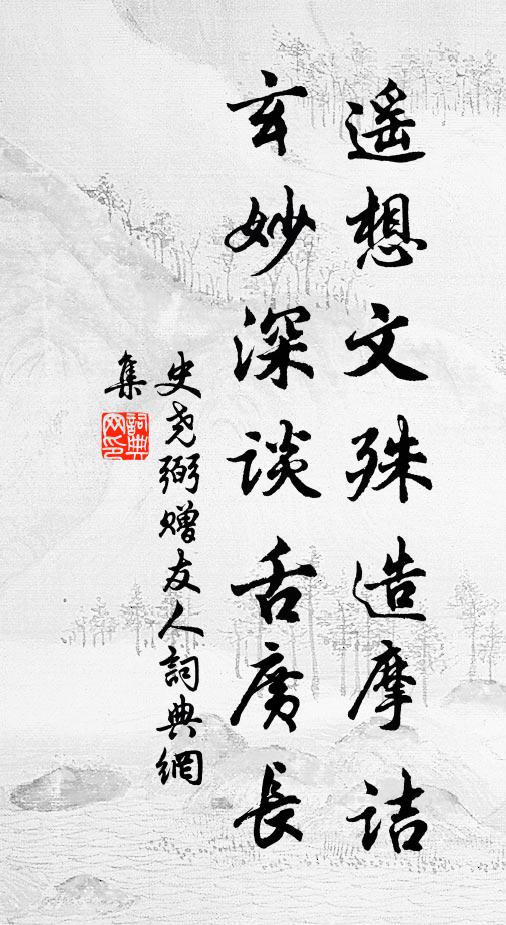 遥想文殊造摩诘
玄妙深谈舌廣長
史尧弼赠友人詞典網
集
詞典
网印